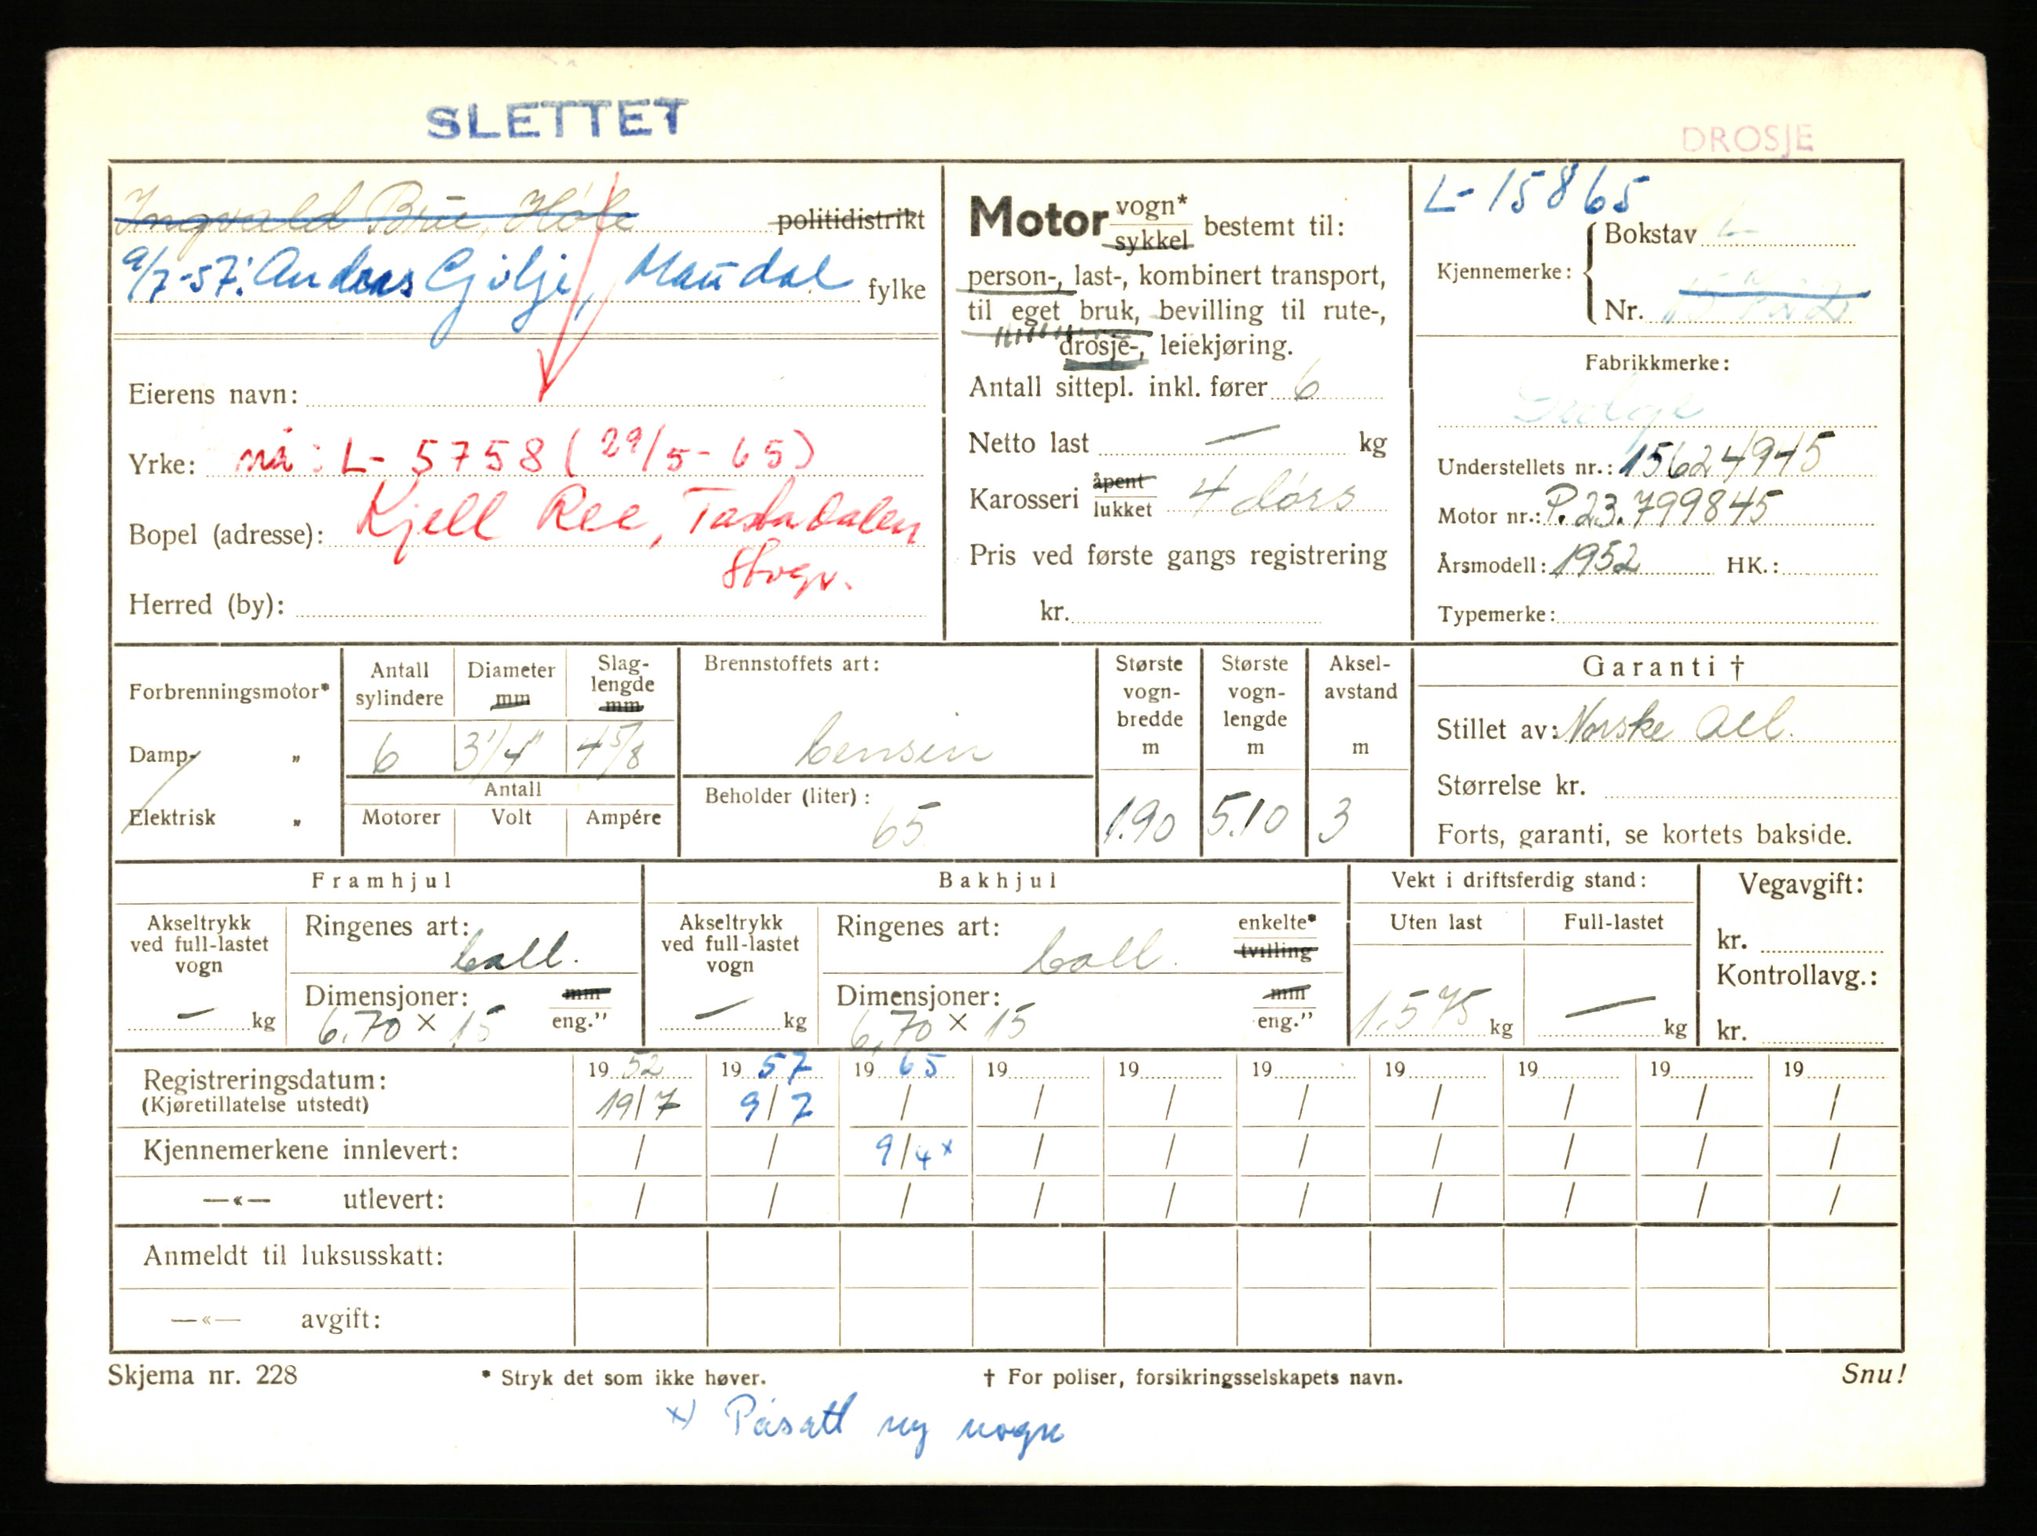 SLETTET
DROSJE
Ingvald Brue, Høle politidistrikt
9/7-57: Andreas Gjilje, Maudal fylke
Eierens navn:
Yrke: nå: L- 5758 (29/5-65)
Bopel (adresse): Kjell Ree, Tastadalen
Stvgr.
Herred (by):
Motor vogn* sykkel bestemt til:
person-, last-, kombinert transport,
til eget bruk, bevilling til rute-,
drosje-, leiekjøring.
Antall sittepl. inkl. fører 6
Netto last — kg
Karosseri åpent lukket 4 dørs
Pris ved første gangs registrering
kr.
L-15865
Kjennemerke: Bokstav L
Nr.
Fabrikkmerke:
Dodge
Understellets nr.: 15624945
Motor nr.: P.23.799845
Årsmodell: 1952 HK.:
Typemerke:
Forbrenningsmotor*
Damp- „
Elektrisk „
Antall sylindere
Diameter mm
Slag-lengde mm
6 3 1/4" 4 5/8
Antall
Motorer Volt Ampére
Brennstoffets art:
bensin
Beholder (liter):
65
Største vogn-bredde m
1.90
Største vogn-lengde m
5.10
Aksel-avstand m
3
Garanti †
Stillet av: Norske All.
Størrelse kr.
Forts, garanti, se kortets bakside.
Framhjul
Akseltrykk ved full-lastet vogn
— kg
Ringenes art:
ball.
Dimensjoner: mm
6.70 x 15 eng."
Bakhjul
Akseltrykk ved full-lastet vogn
— kg
Ringenes art: enkelte* tvilling
ball.
Dimensjoner: mm
6.70 x 15 eng."
Vekt i driftsferdig stand:
Uten last Full-lastet
1.575 kg — kg
Vegavgift:
kr.
Kontrollavg.:
kr.
Registreringsdatum: 19 52 19 57 19 65 19 19 19 19 19 19 19
(Kjøretillatelse utstedt) 19/7 9/7 / / / / / / / /
Kjennemerkene innlevert: / / 9/4 x / / / / / / /
—«— utlevert: / / / / / / / / / /
Anmeldt til luksusskatt:
—«— avgift:
Skjema nr. 228 * Stryk det som ikke høver. † For poliser, forsikringsselskapets navn. Snu!
x) Påsatt ny vogn